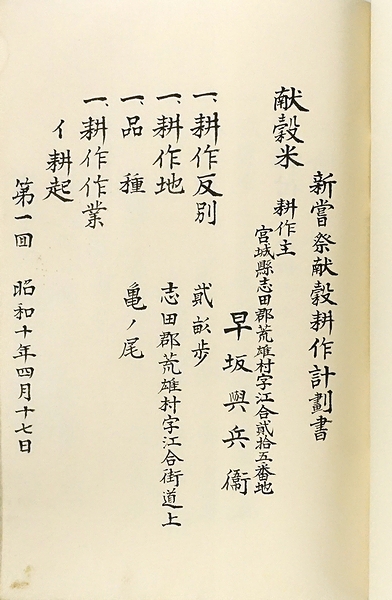 新嘗祭献穀耕作計劃書
献穀米
耕作主
宮城縣志田郡荒雄村字江合貳拾五番地
早坂與兵衞
一、耕作反別 貳畝歩
一、耕作地 志田郡荒雄村字江合街道上
一、品種 亀ノ尾
一、耕作作業
イ耕起
第一回 昭和十年四月十七日